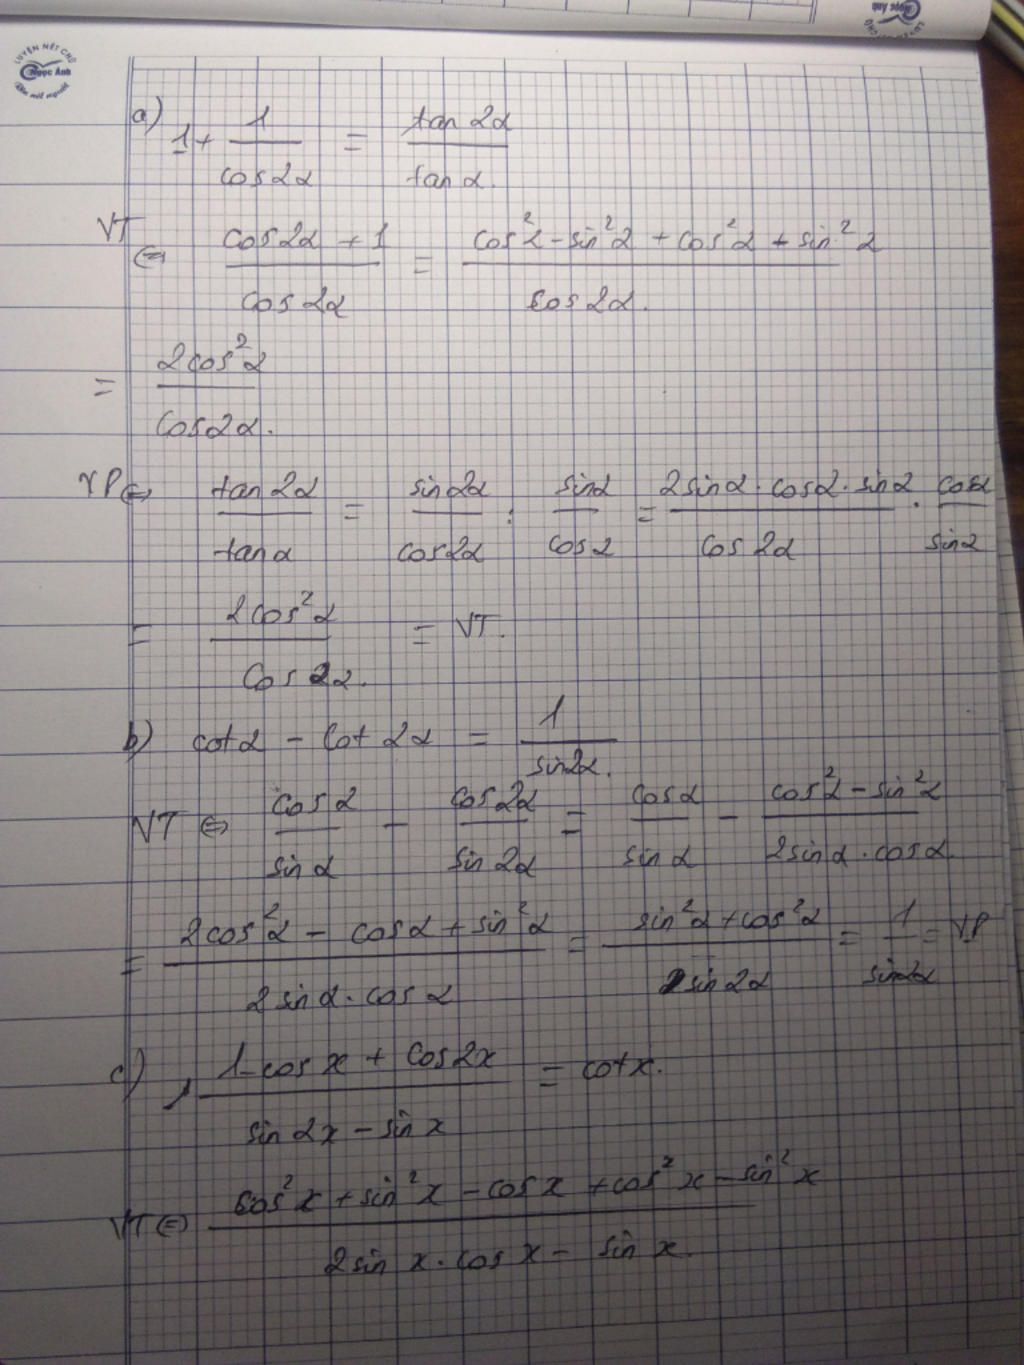 LUYỆN NÉT CHỮ
Ngọc Ánh
Ngọc Ánh
a) 1 + 1/cos2α = tan2α/tanα.
VT ⇔ (cos2α + 1)/cos2α = (cos²α - sin²α + cos²α + sin²α)/cos2α.
= 2cos²α/cos2α.
VP ⇔ tan2α/tanα = sin2α/cos2α : sinα/cosα = (2sinα · cosα · sinα)/cos2α · cosα/sinα
= 2cos²α/cos2α. = VT.
b) cotα - cot2α = 1/sin2α.
VT ⇔ cosα/sinα - cos2α/sin2α = cosα/sinα - (cos²α - sin²α)/(2sinα · cosα)
= (2cos²α - cosα + sin²α)/(2sinα · cosα) = (sin²α + cos²α)/sin2α = 1/sin2α = VP
c) (1 - cosx + cos2x)/(sin2x - sinx) = cotx.
VT ⇔ (cos²x + sin²x - cosx + cos²x - sin²x)/(2sinx · cosx - sinx.)